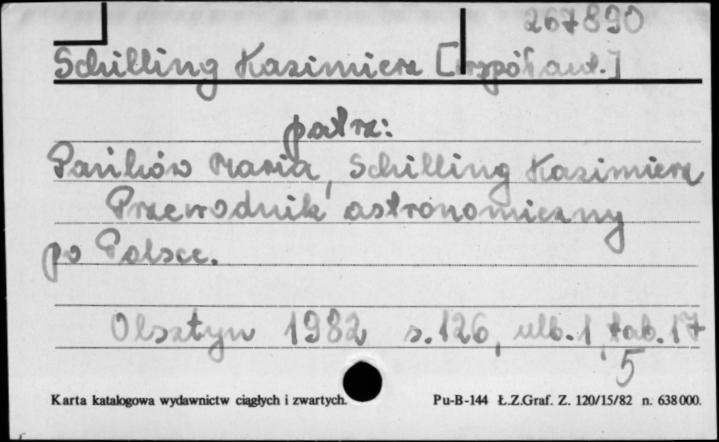 267890
Schilling Kazimierz [współaut.]
patrz:
Pańków Maria, Schilling Kazimierz
Przewodnik astronomiczny
po Polsce.
Olsztyn 1982 s. 126, ulb. 1, tab. 17
5
Karta katalogowa wydawnictw ciągłych i zwartych. Pu-B-144 Ł.Z.Graf. Z. 120/15/82 n. 638000.